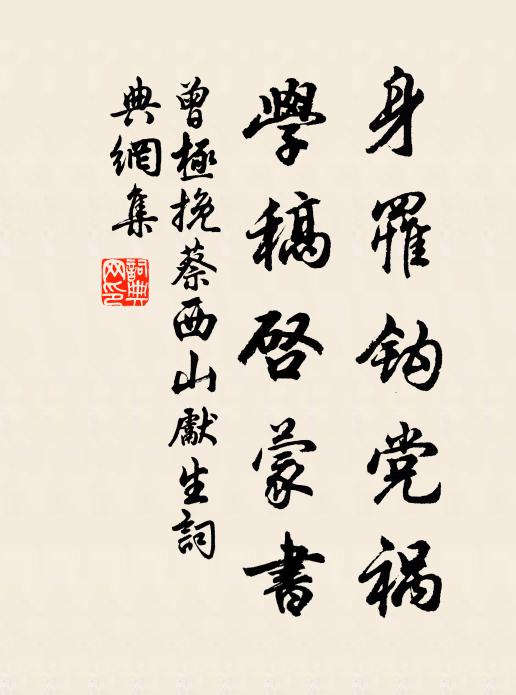 身罹鈎党祸
學稿啓蒙書
曾極挽蔡西山獻生詞
典網集
詞典網印